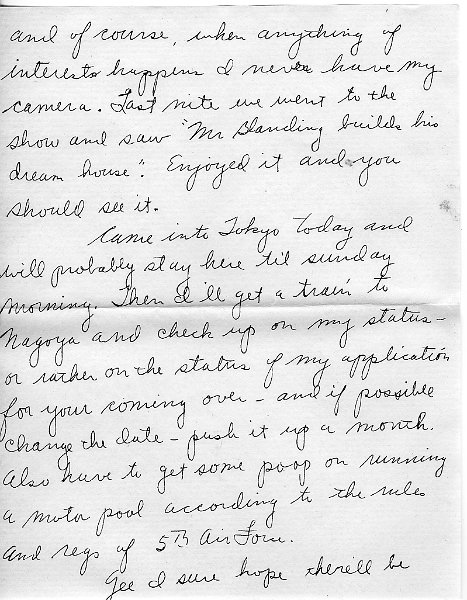 and of course, when anything of
interests happens I never have my
camera. Last nite we went to the
show and saw "Mr Blanding builds his
dream house". Enjoyed it and you
should see it.
Came into Tokyo today and
will probably stay here til sunday
morning. Then I'll get a train to
Nagoya and check up on my status -
or rather on the status of my application
for your coming over - and if possible
change the date - push it up a month.
Also have to get some poop on running
a motor pool according to the rules
and regs of 5th Air Force.
Gee I sure hope there'll be